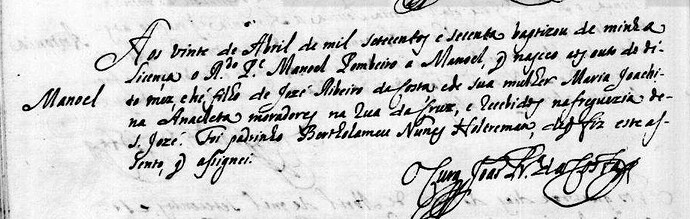 Aos vinte de Abril de mil setecentos e secenta baptizou de minha
Manoel
licença o R.do P.e Manoel Pombeiro a Manoel, q nasceo aos outo do di-
to mez, e hé filho de Jozé Ribeiro da Costa e de sua mulher Maria Joachi-
na Anacleta moradores na Rua da Cruz, e recebidos na freguezia de
S. Jozé. Foi padrinho Bertholameu Nunes de q fiz este as-
sento, q assignei.
O Cura Joao da Costa